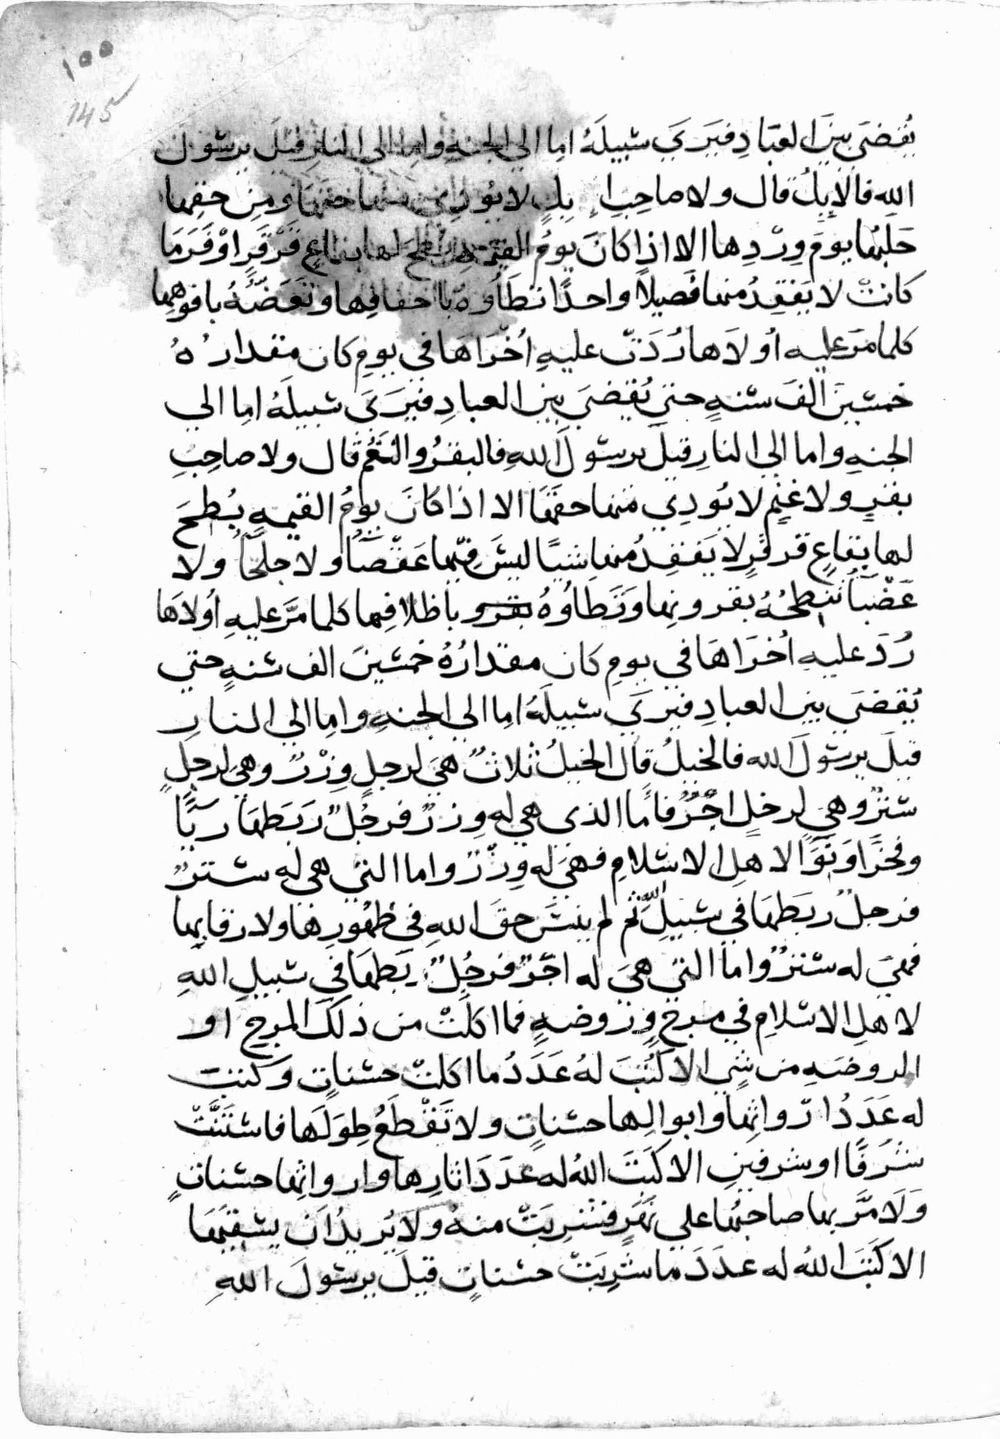 ١٥٥
145
يُقضَي بينَ العبَادِ فيَرَي سَبيلَهُ اما الي الجنهِ واما الي النارِ قيلَ يرسُولَ
الله فالابِلُ قال ولا صاحِبِ ابِلٍ لا يُودي منها حقها ومِن حقِها
حَلَبُها يومَ وِرْدِها الا اذا كانَ يومُ القيمهِ بُطِحَ لها بقاعٍ قَرْقَرٍ اوْفَرَ مَا
كانتْ لا يَفْقِدُ منها فَصِيلاً واحدًا تطَاوهُ باخفافِها وتَعَضّهُ بافوهِها
كلما مَرّ عليهِ اُولَاها رُدَتْ عليهِ اُخْرَاهَا في يومٍ كان مقدارُهُ
خمسِينَ الفَ سنهٍ حتي يُقضَي بينَ العبادِ فيَرَي سَبيلَهُ اما الي
الجنهِ واما الي النارِ قيلَ يرسُولَ اللهِ فالبقرُ والغَنمُ قال ولا صاحِبِ
بقرٍ ولا غنمٍ لا يُودِي منها حقهَا الا اذا كانَ يومُ القيمهِ بُطِحَ
لها بقاعٍ قرقرٍ لا يَفقِدُ منها شيئًا ليسَ فيها عَقْصَا ولا جلحَا ولا
عَضْبَا تنطِحُهُ بقرونِها وتَطاوُهُ باظلافِها كلما مَرَّ عليهِ اُولَاهَا
رُدَ عليهِ اُخرَاهَا في يومٍ كان مقدارُهُ خمسْينَ الف سنهٍ حتي
يُقضَي بينَ العبادِ فيَرَي سبيلَهُ اما الي الجنهِ واما الي النارِ
قيلَ يرسُولَ الله فالخيلُ قال الخيلُ ثلاثٌ هيَ لرجلٍ وِزْرٌ وهيَ لرجلٍ
سترٌ وهي لرجلٍ اجْرٌ فامَا الذي هي له وِزرٌ فرجُلٌ ربَطهَا ريَّا
وفخرًا ونِوَآ لاهلِ الاسْلامِ فهيَ له وِزْرٌ واما التي هي له سترٌ
فرجلٌ ربَطهَا في سَبيلِ اللهِ ثُم لم ينسَ حقَ اللهِ في ظُهُورِها ولا رقابِها
فهيَ له سترٌ واما التي هيَ له اجْرٌ فرجُلٌ ربَطهَا في سَبيلِ اللهِ
لاهلِ الاسْلامِ في مرجٍ وروضهٍ فما اكلتْ من ذلكَ المرجِ او
الروضهِ من شي الا كُتِبَ لهُ عَدَدُ ما اكلتْ حسَناتٍ وكُتِبَ
له عَدَدُ ارواثِها وابوالِها حسناتٍ ولا تَقْطَعُ طِوَلَها فاستَنَّتْ
شَرَفًا او شرفينِ الا كَتَبَ اللهُ له عدَدَ اثارِها وارواثِها حسَناتٍ
وَلَا مَرَّ بها صاحبُها علي نَهَرٍ فشرِبَتْ منهُ ولا يُرِيدُ ان يسْقِيَهَا
الا كَتَبَ اللهُ له عدَدَ ما شرِبَتْ حسناتٍ قيلَ يرسُولَ اللهِ